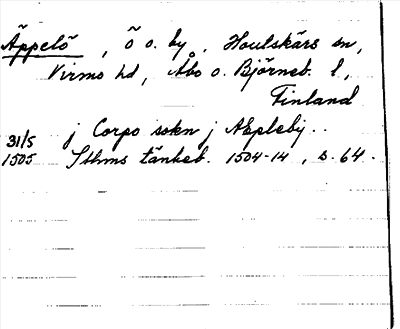 Äppelö, ö o. by, Houtskärs sn,
Virmo hd, Åbo o. Björneb. l,
Finland
31/5 j Corpo sokn j Aepleby..
1505 Sthms tänkeb. 1504-14, s. 64.